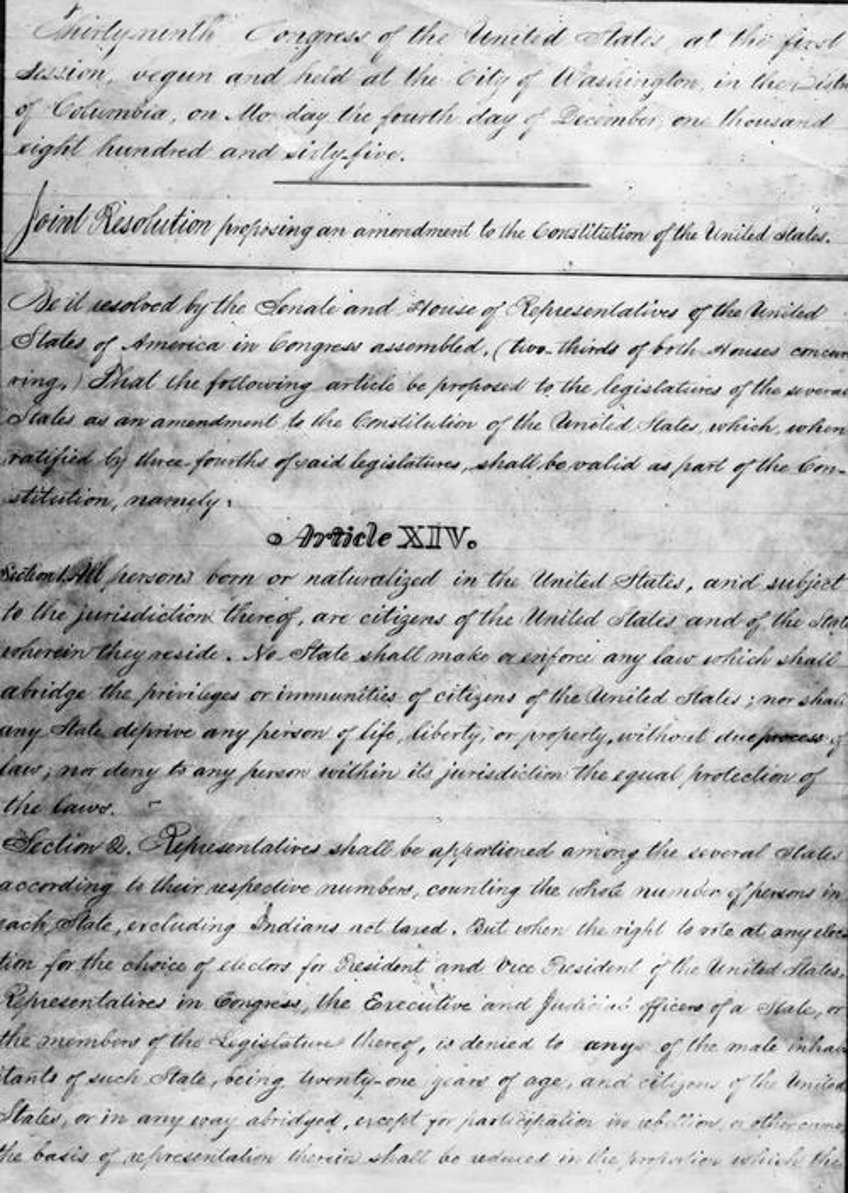 Thirty-ninth Congress of the United States, at the first
Session, begun and held at the City of Washington, in the Distri
of Columbia, on Mo day the fourth day of December, one thousand
eight hundred and sixty-five.
Joint Resolution proposing an amendment to the Constitution of the United States.
Be it resolved by the Senate and House of Representatives of the United
States of America in Congress assembled, (two-thirds of both Houses concur
ring,) That the following article be proposed to the legislatures of the several
States as an amendment to the Constitution of the United States, which, when
ratified by three-fourths of said legislatures, shall be valid as part of the Con-
stitution, namely:
Article XIV.
Section 1. All persons born or naturalized in the United States, and subject
to the jurisdiction thereof, are citizens of the United States and of the State
wherein they reside. No State shall make or enforce any law which shall
abridge the privileges or immunities of citizens of the United States; nor shall
any State deprive any person of life, liberty, or property, without due process of
law; nor deny to any person within its jurisdiction the equal protection of
the laws.
Section 2. Representatives shall be apportioned among the several States
according to their respective numbers, counting the whole number of persons in
each State, excluding Indians not taxed. But when the right to vote at any elec
tion for the choice of electors for President and Vice President of the United States,
Representatives in Congress, the Executive and Judicial officers of a State, or
the members of the Legislature thereof, is denied to any of the male inhab
itants of such State, being twenty-one years of age, and citizens of the United
States, or in any way abridged, except for participation in rebellion, or other crime,
the basis of representation therein shall be reduced in the proportion which the